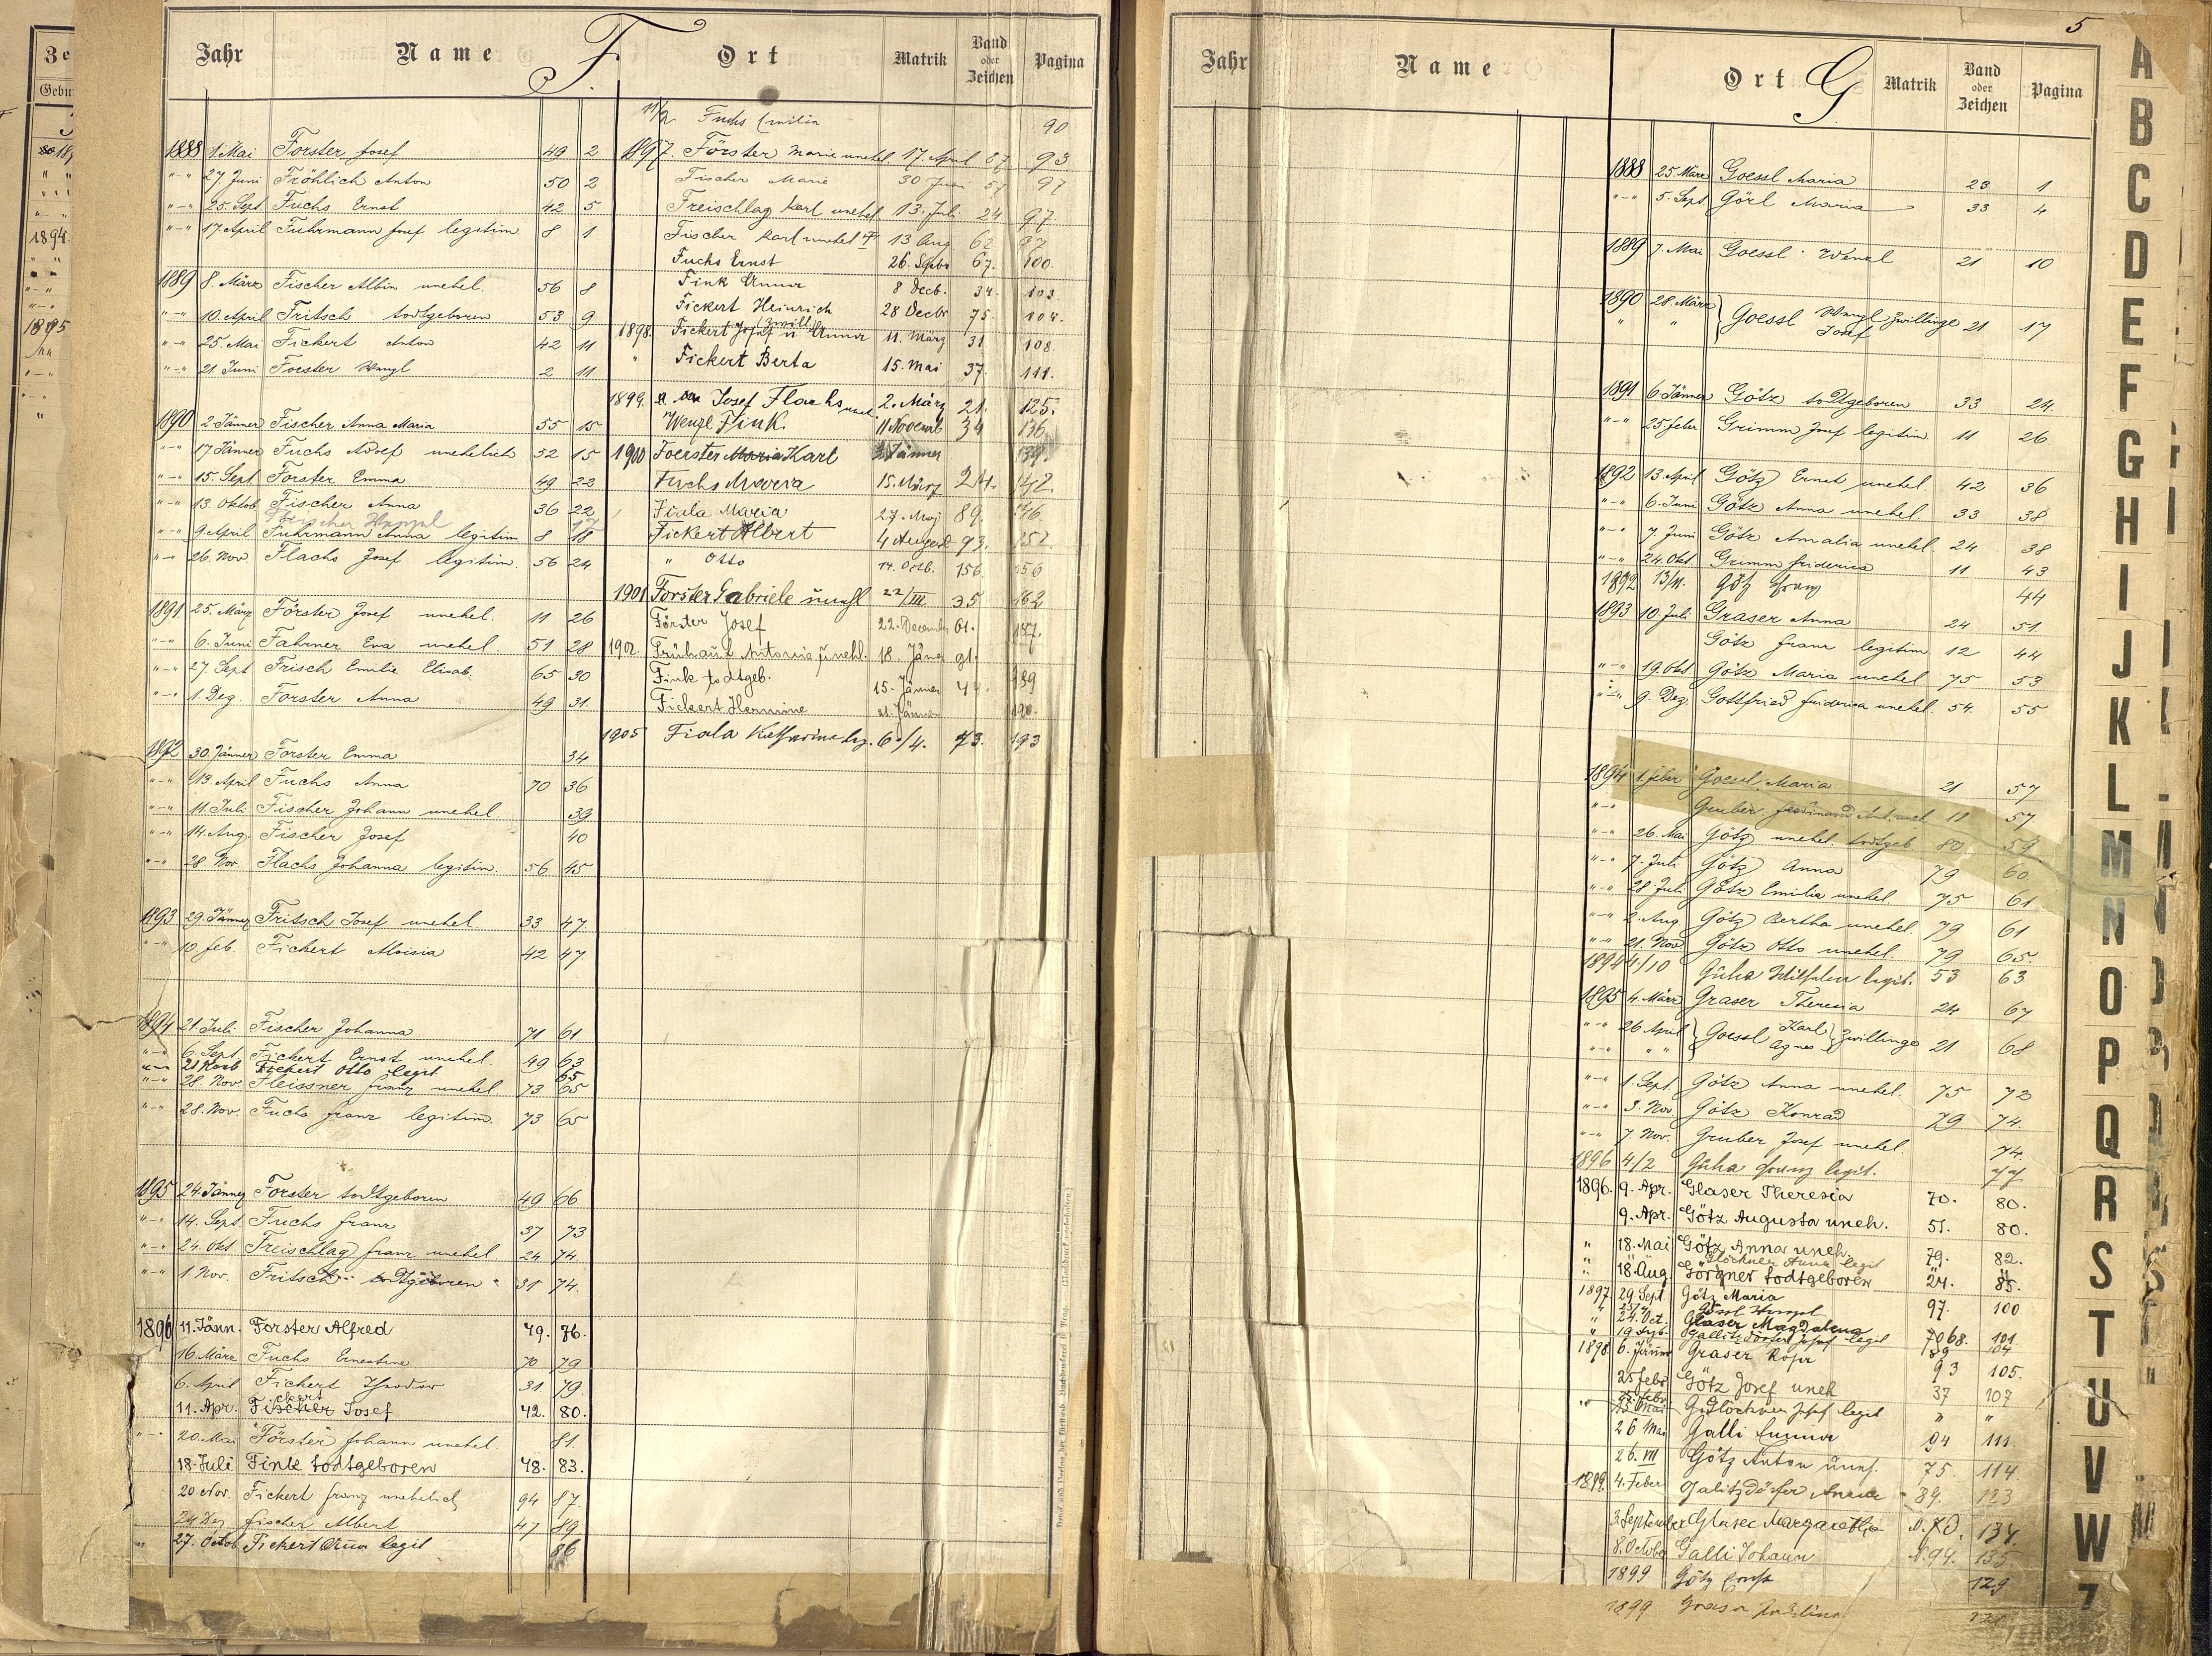 Jahr Name F. Ort Matrik Band oder Zeichen Pagina
1888 1. Mai Forster Josef 49 2
"-" 27 Juni Fröhlich Anton 50 2
"-" 25. Sept Fuchs Ernst 42 5
"-" 17 April Fuhrmann Josef legitim 8 1
1889 8. März Fischer Albin unehel. 56 8
"-" 10. April Fritsch todtgeboren 53 9
"-" 25. Mai Fickert Anton 42 11
"-" 21. Juni Forster Wenzl 2 11
1890 2 Jänner Fischer Anna Maria 55 15
"-" 17 Jänner Fuchs Adolf unehelich 52 15
"-" 15. Sept Forster Emma 49 22
"-" 13. Oktob Fischer Anna 36 22
Fischer Wenzel 17
"-" 9 April Fuhrmann Anna legitim 8 18
"-" 26. Nov. Flachs Josef legitim. 56 24.
1891 25. März Förster Josef unehel. 11 26
"-" 6. Juni Fahrner Eva unehel 51 28
"-" 27. Sept Frisch Emilie Elisab. 65 30
"-" 1. Dez. Forster Anna 49 31.
1892 30. Jänner Forster Emma 34
"-" 13. April Fuchs Anna 70 36
"-" 11. Juli Fischer Johann unehel 39
"-" 14. Aug. Fischer Josef 40
"-" 28. Nov. Flachs Johanna legitim. 56 45
1893 29. Jänner Fritsch Josef unehel. 33 47
"-" 10. feb. Fickert Aloisia 42 47
1894 21 Juli Fischer Johanna 71 61
"-" 6. Sept Fickert Ernst unehel. 49 63
"-" 21 Novb Fickert Otto legit. 65
"-" 28. Nov Fleissner franz unehel 73 65
"-" 28. Nov. Fuchs franz legitim. 73 65
1895 24. Jänner Forster todtgeboren 49 66
"-" 14. Sept. Fuchs franz 37 73
"-" 24. Okt Freischlag franz unehel. 24 74.
"-" 1. Nov. Fritsch todtgeboren 31 74.
1896 11. Jänn. Forster Alfred 49. 76.
16. März Fuchs Ernestine 70 79
6. April Fickert Theodor 31 79.
11. Apr. Fischer ckert Josef 42. 80.
"-" 20. Mai Förster Johann unehel. 81.
18. Juli Fink todtgeboren 48. 83.
20. Nov. Fickert franz unehelich 94 87.
24 Dez fischer Albert 47 89
" 27. Octob Fickert Anna legit 86
11/2 Fuchs Emilia 90
1897. Förster Marie unehel. 17. April 87 93
Fischer Marie 30 Juni 57 97
Freischlag Karl unehel 13. Juli 24 97.
Fischer Karl unehel 13 Aug 62 97
Fuchs Ernst 26. Septbr 67. 100.
Fink Anna 8 Decb. 34. 103
Fickert Heinrich 28 Decbr 75. 104.
1898. Fickert Josef u Anna (Zwill) 11. März 31. 108.
" Fickert Berta 15. Mai 37. 111.
1899. Josef Flachs uneh. 2. März 21. 125.
Wenzl Fink. 11 Novemb 34 136
1900 Foerster Maria Karl Jänner 139.
Fuchs Maria 15. März 24. 142.
Fiala Maria 27. Mai 89. 146.
Fickert Albert 4 August 93. 152
" Otto 14. Octb. 156. 156
1901 Forster Gabriele unehl 22/III 35 162
Förster Josef 22. December 61. 187.
1902. Frühauf Antonia unehl. 18. Jäner 91.
Fink todtgeb. 15. Jänner 44. 189
Fickert Hermine 21. Jänner 190.
1905 Fiala Katharina leg. 6./4. 73. 193
5
Jahr Name Ort G Matrik Band oder Zeichen Pagina
1888 25 März Goessl Maria 23 1
"-" 5. Sept Görl Maria 33 4
1889 7. Mai Goessl Wenzl 21 10
1890 28. März Goessl Wenzl Josef Zwillinge 21 17
1891 6 Jänner Götz todtgeboren 33 24
"-" 25 feber Grimm Josef legitim. 11 26
1892 13. April Götz Ernst unehel. 42 36
"-" 6. Juni Götz Anna unehel 33 38
"-" 7. Juni Götz Amalia unehel. 24 38
"-" 24. Okt Grimm friderica 11 43
1892 13/11. Götz Franz 44
1893 10. Juli Graser Anna 24 51.
Götz franz legitim 12 44
"-" 19. Okt Götz Maria unehel. 75 53
"-" 9. Dez. Gottfried friderica unehel. 54. 55
1894 1. feber Goessl Maria 21 57
"-" Gruber ferdinand Ant. unehel 18 57
"-" 26. Mai Götz unehel. todtgeb 80 59
"-" 7. Juli Götz Anna 79 60
"-" 28. Juli Götz Emilia unehel. 75 61
"-" 2. Aug Götz Bertha unehel. 79 61
"-" 21. Nov Götz Otto unehel. 79 65.
1894 4/10 Güha legit. 53 63
1895 4. März Graser Theresia 24 67
"-" 26 April Goessl Karl Agnes Zwillinge 21 68
"-" 1. Sept. Götz Anna unehel. 75 72
"-" 3. Nov. Götz Konrad 79 74.
"-" 7. Nov. Gruber Josef unehel. 74.
1896 4/2 Güha Franz legit. 77
1896. 9. Apr. Glaser Theresia 70. 80.
9. Apr. Götz Augusta uneh. 51. 80.
" 18. Mai Götz Anna uneh. 79. 82.
Glöckner Anna legit
" 18. Aug. Görgner todtgeboren 24. 85.
1897 29. Sept. Götz Maria 97. 100
" 24. Oct. Glaser Magdalena 70 68. 101
" 19 Gallitzdörfer Josef legit 89 104
1898 6. Jänner Graser Rosa 93 105.
25 febr Götz Josef uneh 37 107
"" 25 Mai Glöckner Josef legit " "
26 Mai Galli Emma 94 111.
26. VII Götz Anton uneh. 75. 114.
1899. 4. Feber Galitzdörfer Anna 89. 123
3. September Glaser Margaretha N. 70. 134.
8. October Galli Johann N. 94. 135.
1899 Götz Ernst 129
1899 Graser
A
B
C
D
E
F
G
H
I
J
K
L
M
N
O
P
Q
R
S
T
U
V
W
Z